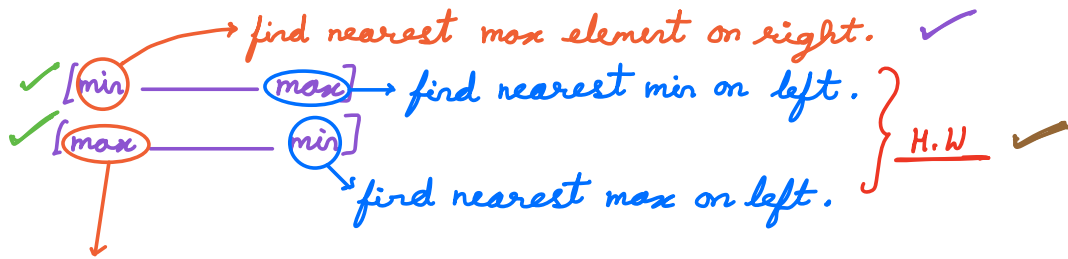 find nearest max element on right.
[min max] find nearest min on left.
[max min] H.W
find nearest max on left.